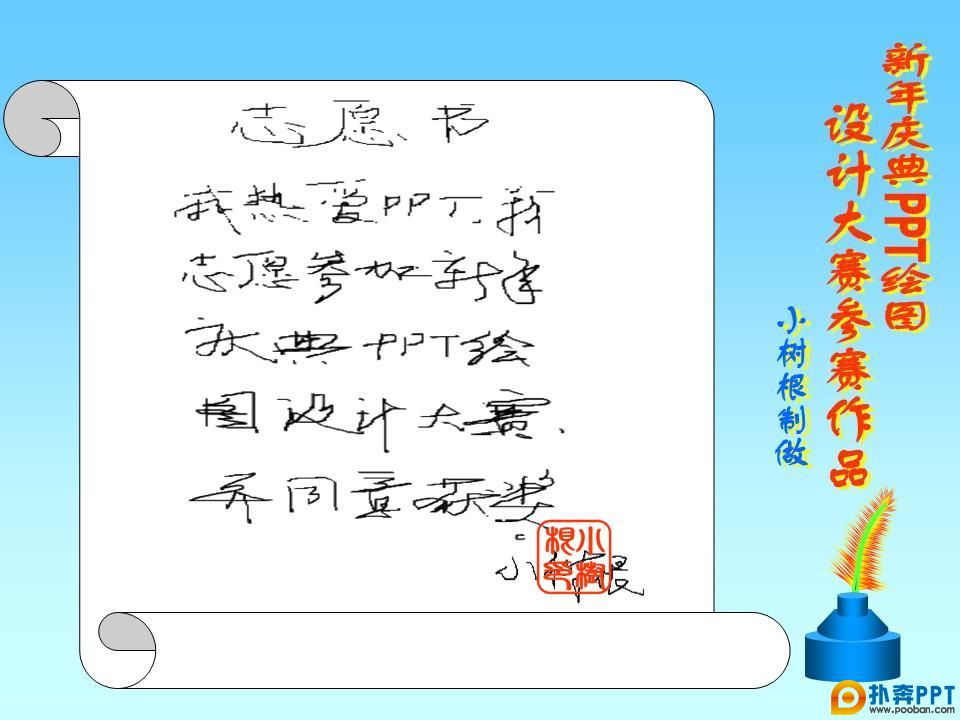 新年庆典PPT绘图
设计大赛参赛作品
小树根制做
志愿书
我热爱PPT,我
志愿参加新年
庆典PPT绘
图设计大赛,
并同意获奖。
小树根
小树根印
扑奔PPT
www.pooban.com